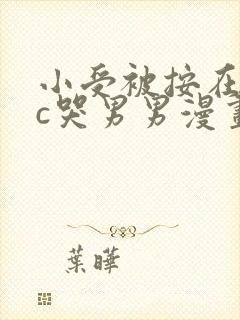 小受被按在
c哭男男漫畫
葉曄